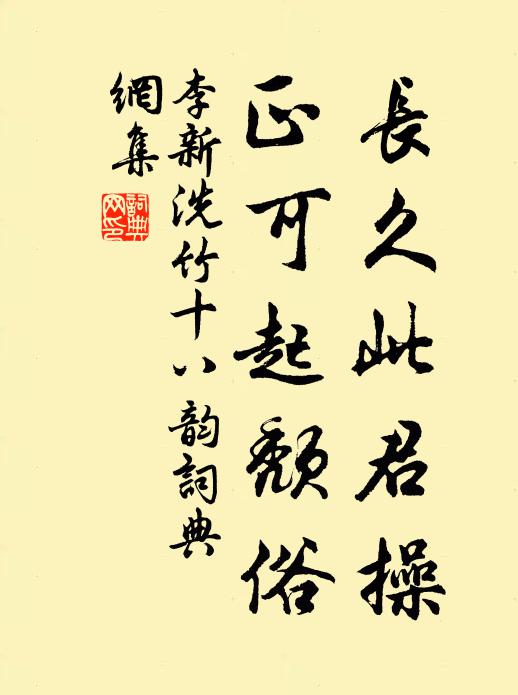 長久此君操
正可起頽俗
李新洗竹十八韵詞典
網集
詞典
网印